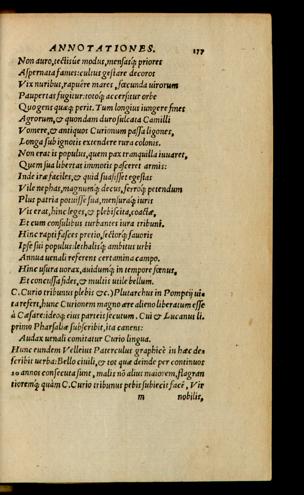 ANNOTATIONES. 177
Non auro, tectisúe modus, mensasq́; priores
Aspernata fames: cultus gestare decoros
Vix nuribus, rapuêre mares, fœcunda uirorum
Paupertas fugitur: totoq́; accersitur orbe
Quo gens quæq; perit. Tum longius iungere fines
Agrorum, & quondam duro sulcata Camilli
Vomere, & antiquos Curionum passa ligones,
Longa sub ignotis extendere rura colonis.
Non erat is populus, quem pax tranquilla iuuaret,
Quem sua libertas immotis pasceret armis:
Inde iræ faciles, & quid suasisset egestas
Vile nephas, magnumq́; decus, ferroq́; petendum
Plus patria potuisse sua, mensuraq́; iuris
Vis erat, hinc leges, & plebiscita, coactæ,
Et cum consulibus turbantes iura tribuni.
Hinc rapti fasces pretio, sectorq́; fauoris
Ipse sui populus: lethalisq́; ambitus urbi
Annua uenali referens certamina campo.
Hinc usura uorax, auidumq́; in tempore fœnus,
Et concussa fides, & multis utile bellum.
C. Curio tribunus plebis &c.) Plutarchus in Pompeij ui-
ta refert, hunc Curionem magno ære alieno liberatum esse
à Cæsare: ideoq́; eius parteis secutum. Cui & Lucanus li.
primo Pharsaliæ subscribit, ita canens:
Audax uenali comitatur Curio lingua.
Hunc eundem Velleius Paterculus graphicè in hæc de-
scribit uerba: Bello ciuili, & tot quæ deinde per continuos
20 annos consecuta sunt, malis nō alius maiorem, flagran
tioremq́; quàm C. Curio tribunus pebis subiecit facē, Vir
m nobilis,